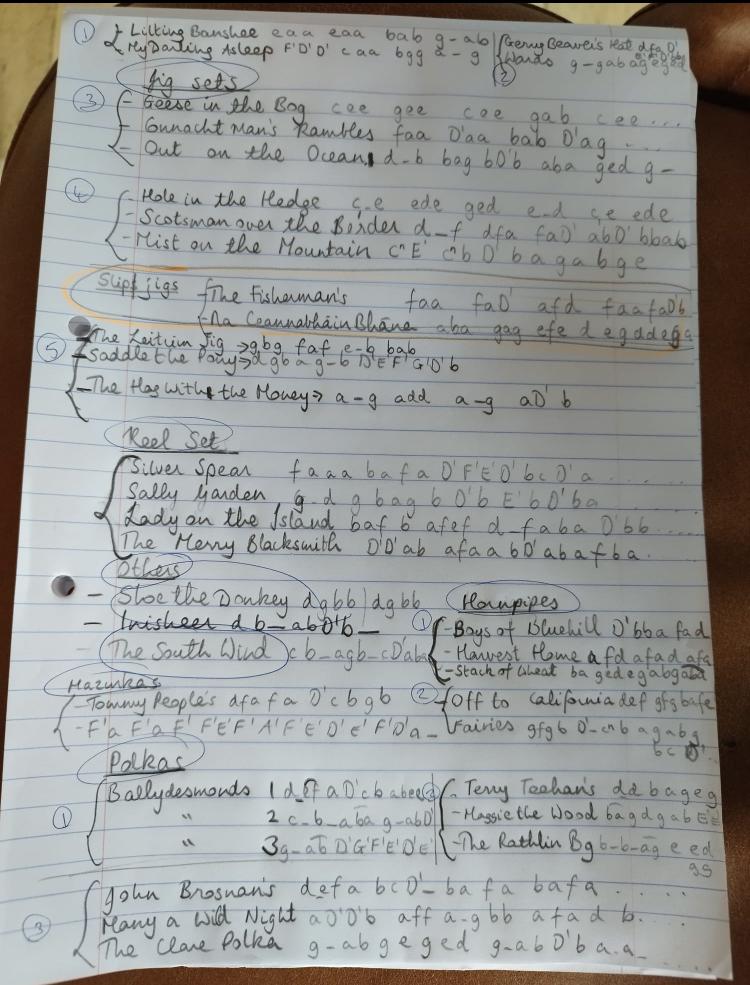 ① Lilting Banshee eaa eaa bab g-ab
My Darling Asleep F'D'D' caa bgg a-g
Gerry Beaver's Hat dfa D'
Wards g-gab ageged
②
Jig sets
③ - Geese in the Bog cee gee cee gab cee...
- Connacht Man's Rambles faa D'aa bab D'ag ....
- Out on the Ocean d-b bag bD'b aba ged g-
④ - Hole in the Hedge c-e ede ged e-d c,e ede
- Scotsman over the Border d-f dfa faD' abD' bbab
- Mist on the Mountain cnE' cnb D' b a g a b g e
Slip jigs - The Fisherman's faa faD' afd faafaD'b
- Na Ceannabháin Bhána aba gag efe d egddega
⑤ - The Leitrim Jig → gbg faf e-b bab
- Saddle the Pony → dgb a g-b D'E'F'G'D'b
- The Hag With the Money → a-g add a-g aD'b
Reel Set
Silver Spear f a a a b a f a D'F'E'D' b c D'a ......
Sally Garden g-d g bag b D'b E'b D'ba
Lady on the Island baf b afef d-faba D'bb ...
The Merry Blacksmith D'D'ab afaa bD'abafba.
Others
- Sloe the Donkey dgbb | dgbb
- Inisheer d b-abD'b-
- The South Wind c b-agb-cD'aba
Hornpipes
① - Boys of Bluehill D'bba fad
- Harvest Home afd afad afa
- Stack of Wheat ba gedegabgabd
Mazurkas
- Tommy People's dfa fa D'c b g b
- F'a F'a F' F'E'F' A'F'E'D'E'F'D'a -
② - Off to California def gfgbafe
Fairies gfgb D'-cnb agabg
bc D'
Polkas
① Ballydesmonds 1 d-ef a D'cb abee
" 2 c-b-aba g-abD'
" 3 g-ab D'G'F'E'D'E'
② - Terry Teehan's dd b a g e g
- Maggie the Wood bagdgab E'E'
- The Rathlin Bg b-b-ag e ed
gg
③ John Brosnan's defa bcD'- ba fa bafa .....
Many a Wild Night aD'D'b aff a-gbb afad b.
The Clare Polka g-ab g e g e d g-ab D'b a.a- ....